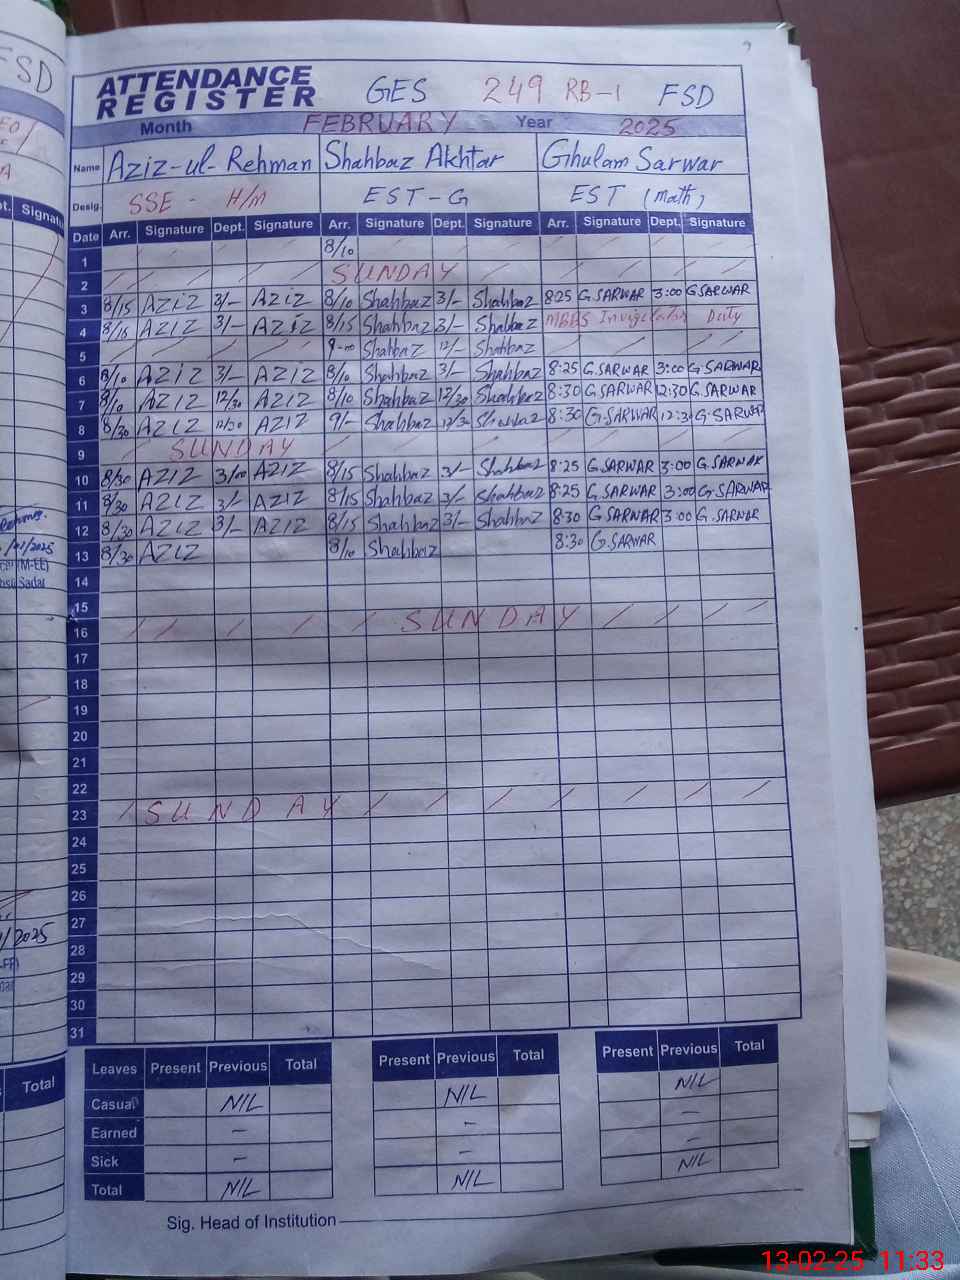 FSD
ATTENDANCE
REGISTER
GES 249 RB-1 FSD
Month FEBRUARY Year 2025
Name Aziz-ul-Rehman Shahbaz Akhtar Ghulam Sarwar
Desig. SSE - H/M EST-G EST (math)
Date Arr. Signature Dept. Signature Arr. Signature Dept. Signature Arr. Signature Dept. Signature
1 8/10
2 SUNDAY
3 8/15 AZIZ 3/- AZIZ 8/10 Shahbaz 3/- Shahbaz 8:25 G.SARWAR 3:00 G.SARWAR
4 8/15 AZIZ 3/- AZIZ 8/15 Shahbaz 3/- Shahbaz MBBS Invigilator Duty
5 9-00 Shahbaz 12/- Shahbaz
6 8/10 AZIZ 3/- AZIZ 8/10 Shahbaz 3/- Shahbaz 8:25 G.SARWAR 3:00 G.SARWAR
7 8/10 AZIZ 12/30 AZIZ 8/10 Shahbaz 12/30 Shahbaz 8:30 G.SARWAR 12:30 G.SARWAR
8 8/30 AZIZ 12/30 AZIZ 9/- Shahbaz 12/30 Shahbaz 8:30 G.SARWAR 12:30 G.SARWAR
9 SUNDAY
10 8/30 AZIZ 3/00 AZIZ 8/15 Shahbaz 3/- Shahbaz 8:25 G.SARWAR 3:00 G.SARWAR
11 8/30 AZIZ 3/- AZIZ 8/15 Shahbaz 3/- Shahbaz 8:25 G.SARWAR 3:00 G.SARWAR
12 8/30 AZIZ 3/- AZIZ 8/15 Shahbaz 3/- Shahbaz 8:30 G.SARWAR 3:00 G.SARWAR
13 8/30 AZIZ 8/10 Shahbaz 8:30 G.SARWAR
14
15
16 SUNDAY
17
18
19
20
21
22
23 SUNDAY
24
25
26
27
28
29
30
31
Leaves Present Previous Total Present Previous Total Present Previous Total
Casual NIL NIL NIL
Earned - - -
Sick - - -
Total NIL NIL NIL
Sig. Head of Institution
Total
13-02-25 11:33